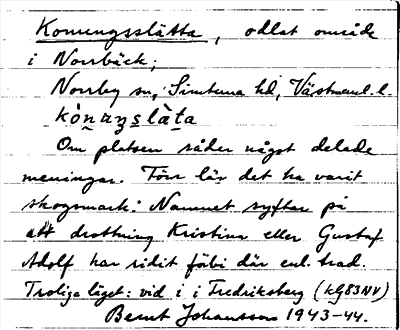 Konungsslätta, odlat område
i Norrbäck;
Norrby sn, Simtuna hd, Västmanl. l.
kònaŋslàta
Om platsen råder något delade
meningar. Förr lär det ha varit
skogsmark. Namnet syftar på
att drottning Kristina eller Gustaf
Adolf har ridit förbi där enl. trad.
Troliga läget: vid i i Fredriksberg (kg83NV)
Bernt Johansson 1943-44.